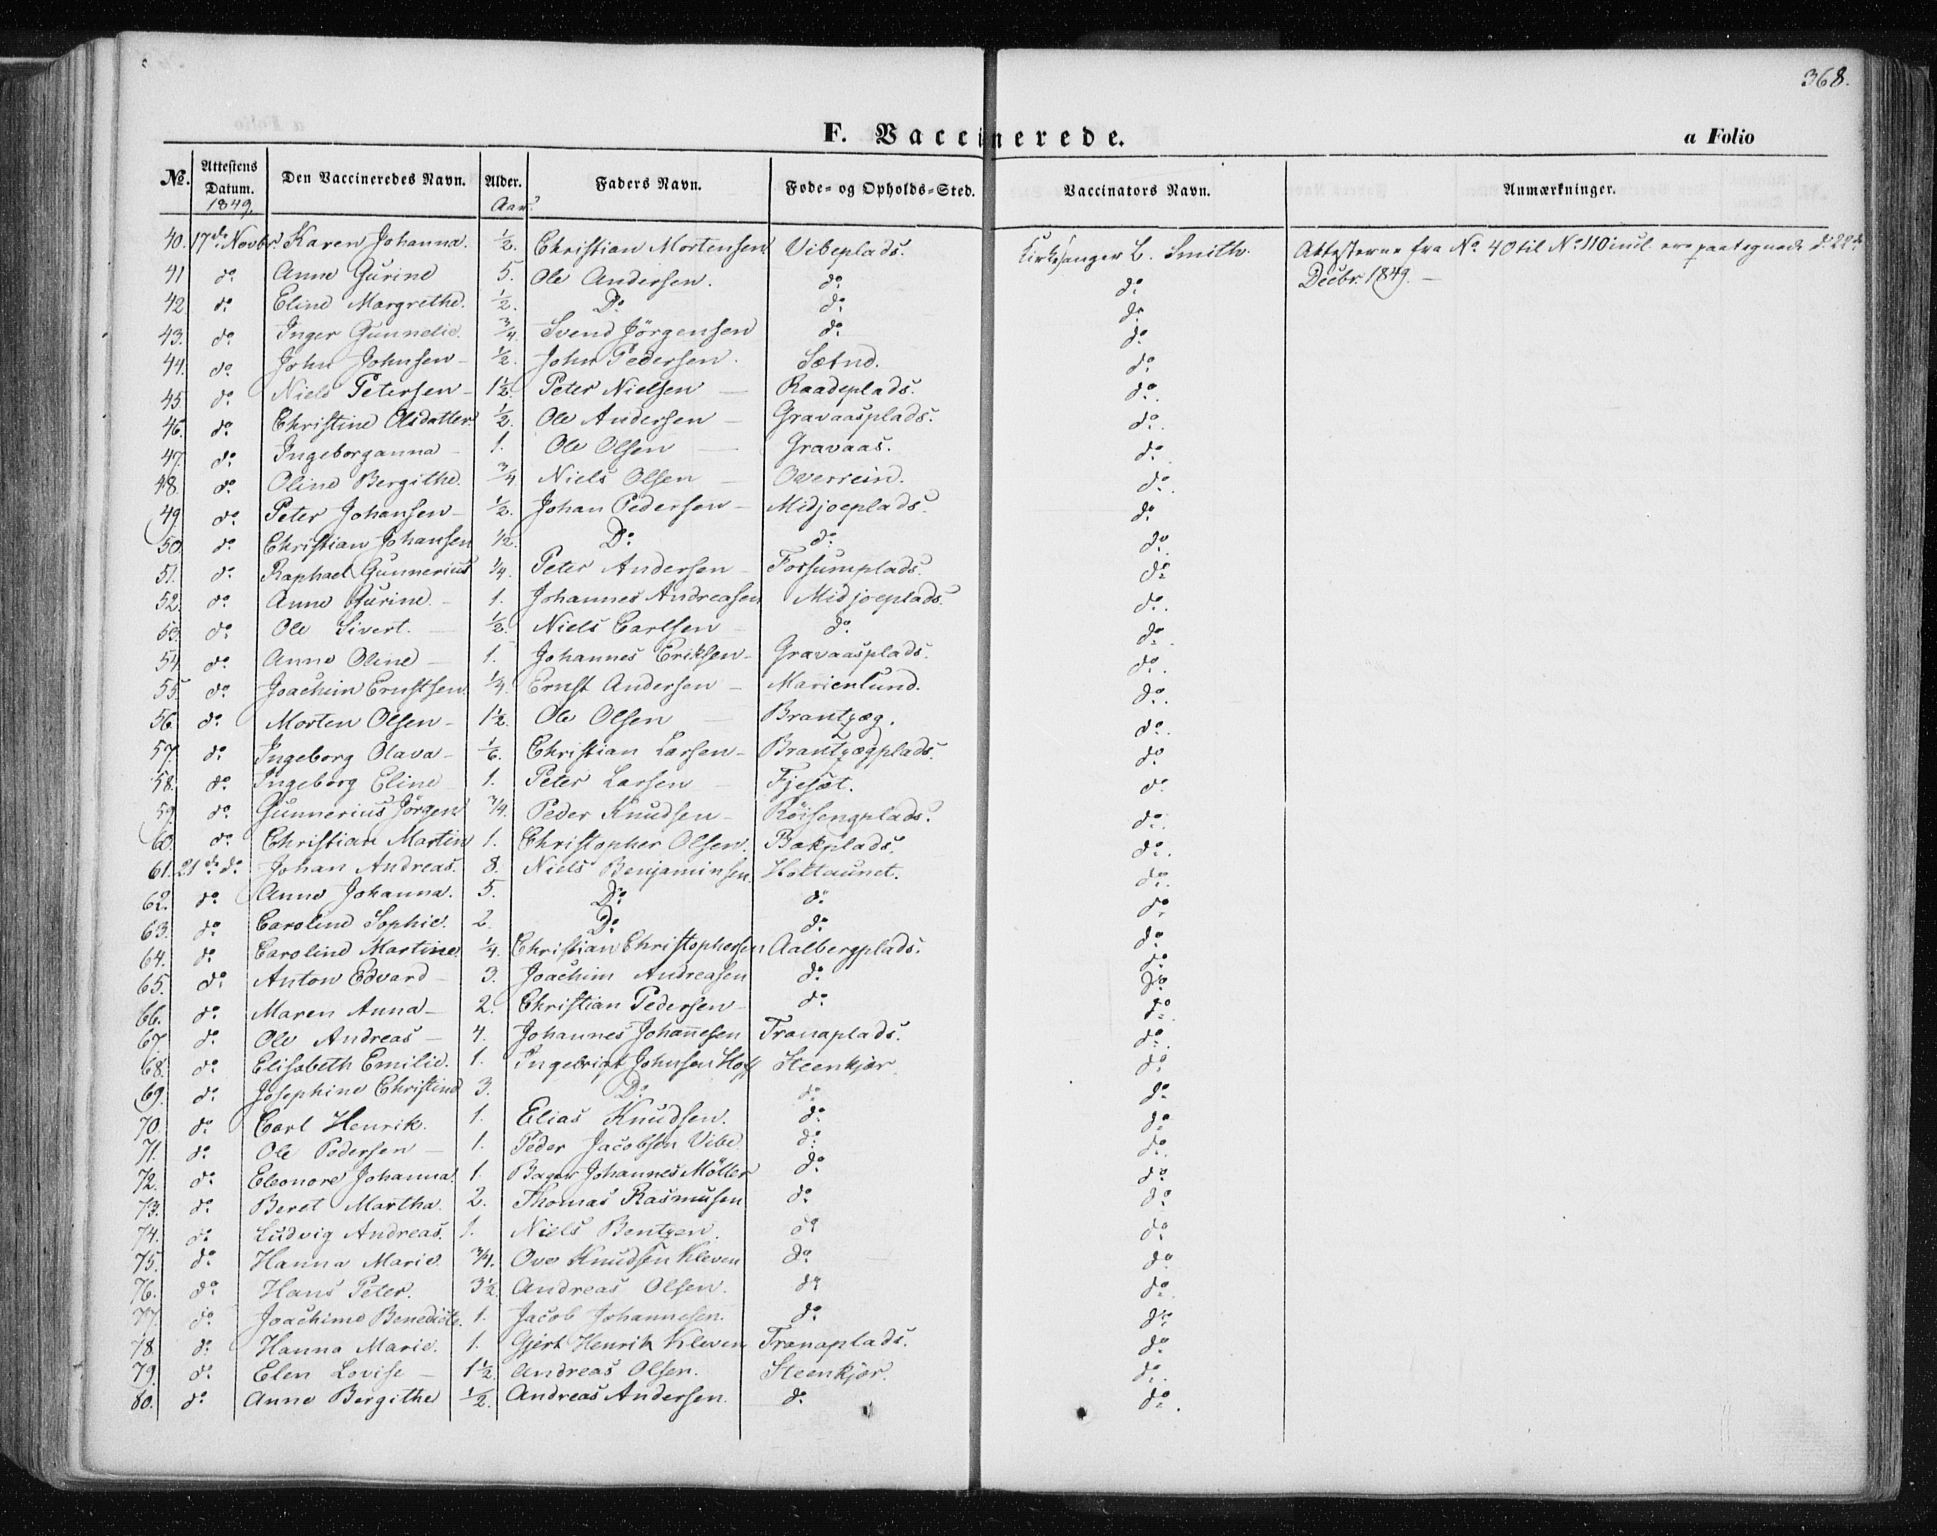 368.
F. Vaccinerede. a Folio
No. Attestens Datum. 1849. Den Vaccineredes Navn. Alder. Aar. Faders Navn. Føde- og Opholds-Sted. Vaccinators Navn. Anmærkninger.
40. 17de Novbr Karen Johanna. ½. Christian Mortensen Vibeplads. Kirkesanger L. Smith. Attesterne fra No 40 til No 110 incl. ere paategnede d:
41 do Anne Gurine 5. Ole Andersen. do do Decbr. 1849. —
42. do Eline Margrethe. ½. Do do do
43. do Inger Gunnelie. ¾ Svend Jörgensen do do
44. do John Johnsen — ½. John Pedersen. Sætnd. do
45. do Niels Petersen — 1½. Peter Nielsen — Raadeplads. do
46. do Christine Olsdatter ½. Ole Andersen — Gravaasplads. do
47. do Ingeborganna — 1. Ole Olsen — Gravaas. do
48. do Oline Bergithe. ¾ Niels Olsen — Overrein. do
49. do Peter Johansen — ½. Johan Pedersen — Midjoeplads. do
50. do Christian Johansen ½. Do do do
51. do Raphael Gunnerius ¼. Peter Andersen — Forsumplads. do
52. do Anne Gurine. — 1. Johannes Andreasen Midjoeplads. do
53. do Ole Sivert. — ½. Niels Carlsen — do do
54. do Anne Oline — 1. Johannes Eriksen — Gravaasplads. do
55. do Joachim Ernstsen ¼. Ernst Andersen — Marienlund. do
56. do Morten Olsen — 1½. Ole Olsen — Brantzæg. do
57. do Ingeborg Olava — 1/6. Christian Larsen — Brantzægplads. do
58. do Ingeborg Eline 1. Peter Larsen — Fjesæt. do
59. do Gunnerius Jörgen ¾. Peder Knudsen — Röisengplads. do
60. do Christian Martin 1. Christopher Olsen. Bakplads. do
61. 21de do Johan Andreas. 8. Niels Benjaminsen. Holtaunet. do
62. do Anne Johanna. 5. Do do do
63. do Caroline Sophie. 2. Do do do
64. do Caroline Martine ¼. Christian Christophersen Aalbergplads. do
65. do Anton Edvard — 3. Joachim Andreasen do do
66. do Maren Anna — 2. Christian Pedersen — do do
67. do Ole Andreas — 4. Johannes Johannesen Tranaplads. do
68. do Elisabeth Emilie. 1. Ingebrigt Johnsen Hoff Steenkjær. do
69. do Josephine Christine 3. Do do do
70. do Carl Henrik. 1. Elias Knudsen. do do
71. do Ole Pedersen — 1. Peder Jacobsen Vibe do do
72. do Eleonore Johanna. 1. Bager Johannes Möller do do
73. do Beret Martha. 2. Thomas Rasmusen do do
74. do Ludvig Andreas. 1. Niels Bentzen. do do
75. do Hanna Marie. ¾. Ove Knudsen Kleven do do
76. do Hans Peter. 3½ Andreas Olsen. do do
77. do Joachime Benedicte. 1. Jacob Johannesen. do do
78. do Hanna Marie. 1. Gjert Henrik Kleven Tranaplads. do
79. do Elen Lovise — 1½. Andreas Olsen. Steenkjær. do
80. do Anne Bergithe ½. Andreas Andersen. do do